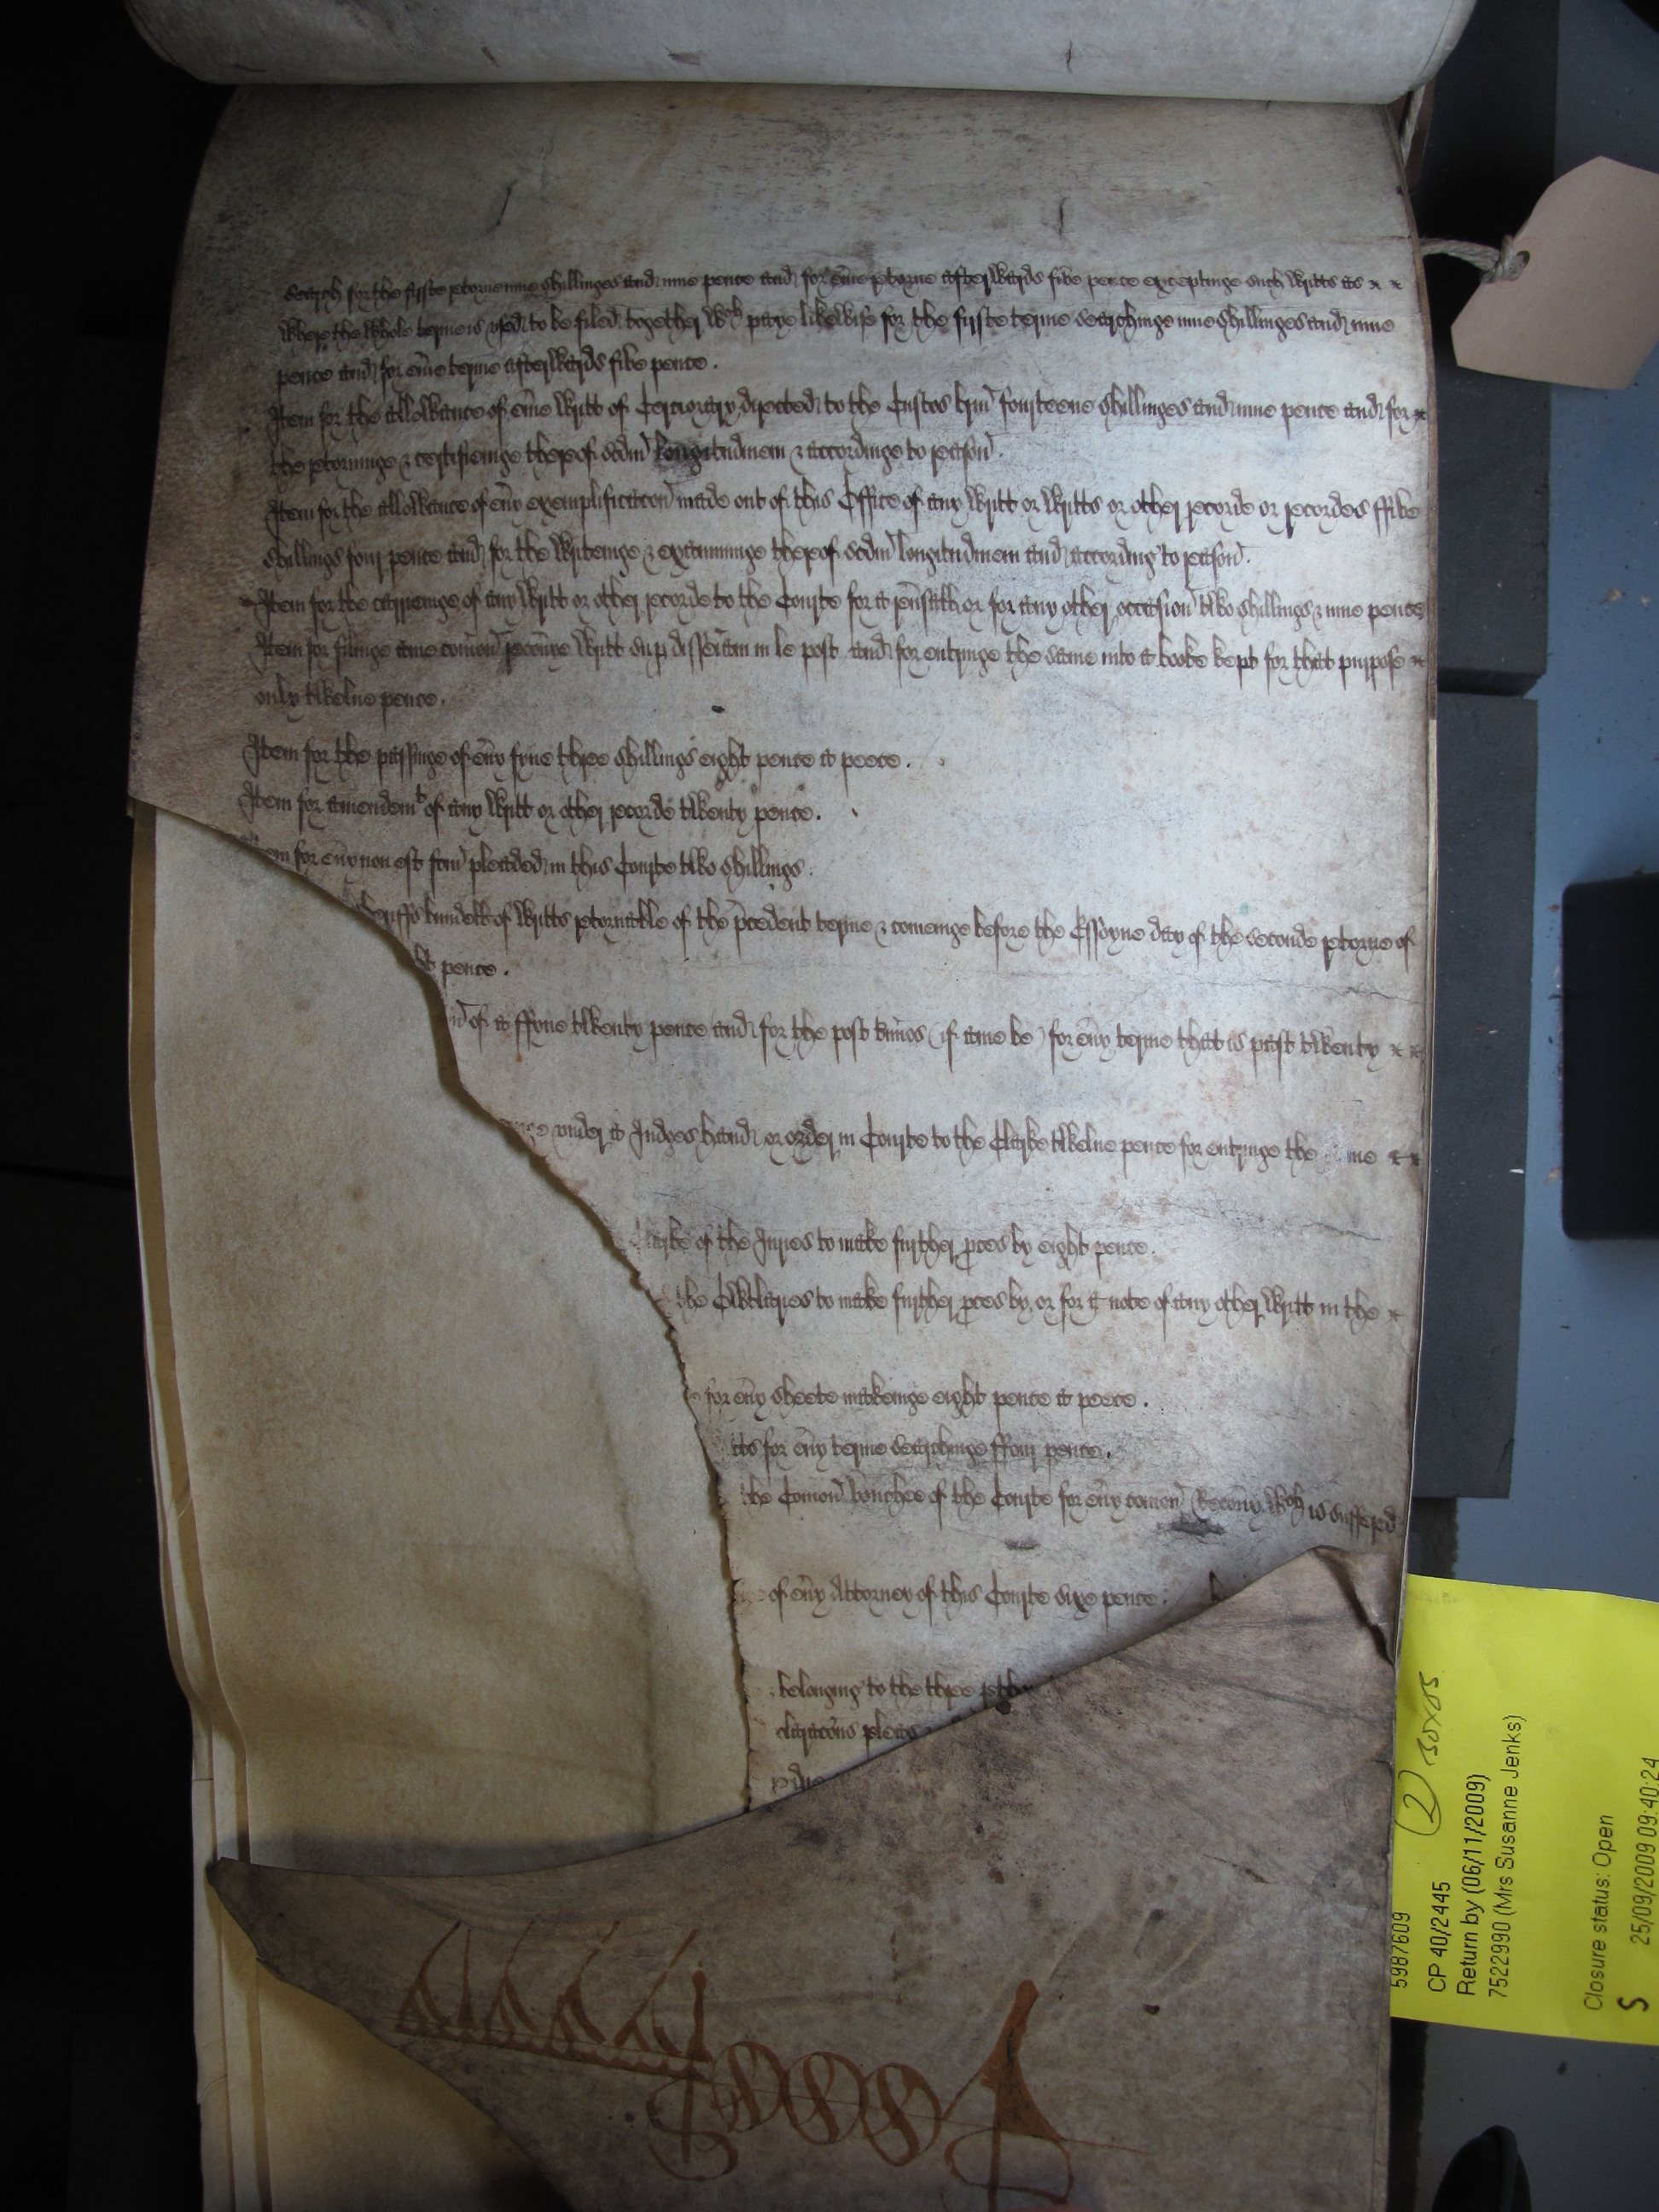 search for the firste retorne nine shillinges and nine pence and for eu͠ie retorne afterwards five pence exceptinge such writts as
where the whole terme is used to be filed together wch paye likewise for the firste terme searchinge nine shillinges and nine
pence and for eu͠ie terme afterwards five pence.
Item for the allowance of eu͠ie writt of Cerciorary directed to the Custos br̃iu fourteene shillinges and nine pence and for
the retorninge & certifieinge thereof scdm̃ longitudinem & accordinge to reason.
Item for the allowance of eu͠y exemplificac̃on made out of this Office of any writt or writts or other recorde or recordes ffive
shillings four pence and for the writeinge & examininge thereof scdm̃ longitudinem and according to reason.
Item for the carrieinge of any writt or other recorde to the Courte for a or for any other occasion two shillings & nine pence
Item for filinge anie com̃on recou͠ye writt sup disseisin in le post and for entringe the same into a booke kept for that purpose
only twelue pence.
Item for the passinge of eu͠y fyne three shillings eight pence a peece.
Item for amendemt of any writt or other recorde twenty pence.
em for eu͠y non est fcm̃ pleaded in this Courte two shillings.
heriffs bundell of writts retornable of the p̃cedent terme & comeinge before the Essoyne day of the seconde retorne of
pence.
of a ffyne twenty pence and for the post (if anie be) for eu͠y terme that is past twenty
under a Judges hand or order in Courte to the Clarke twelue pence for entringe the
arke of the Juries to make further pces by eight pence.
the to make further pces by, or for a note of any other writt in the
for eu͠y sheete makeinge eight pence a peece.
tts for eu͠y terme searchinge ffour pence.
the Com̃on vouchee of the Courte for eu͠y com̃on Recou͠y wch is suffered
of eu͠y Attorney of this Courte sixe pence.
belonging to the three
clarac̃ons pleas
5987609
CP 40/2445
Return by (06/11/2009)
7522990 (Mrs Susanne Jenks)
Closure status: Open
S 25/09/2009 09:40:24